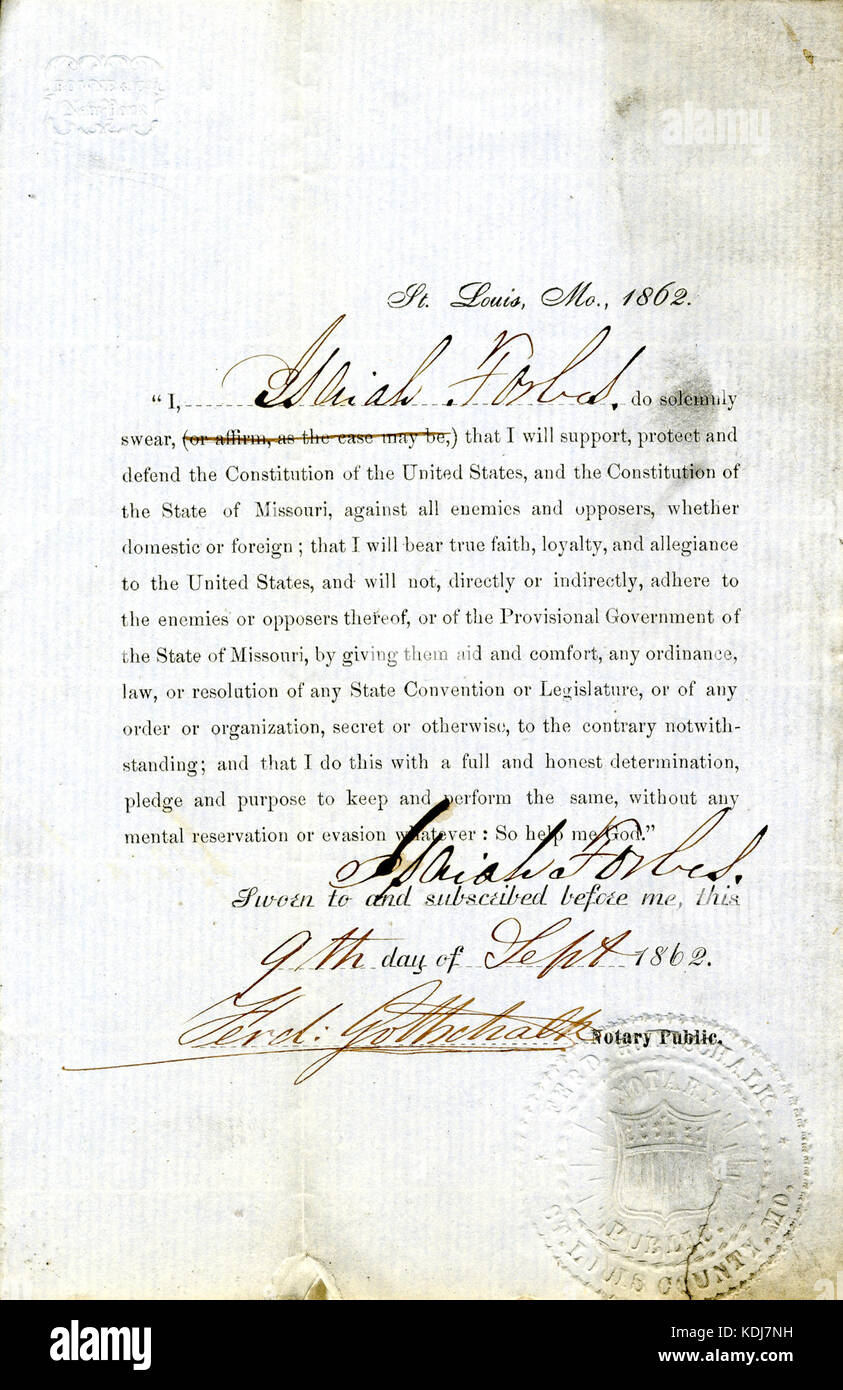 alamy
St. Louis, Mo., 1862.
"I, Isaiah Forbes. do solemnly
swear, (or affirm, as the case may be,) that I will support, protect and
defend the Constitution of the United States, and the Constitution of
the State of Missouri, against all enemies and opposers, whether
domestic or foreign; that I will bear true faith, loyalty, and allegiance
to the United States, and will not, directly or indirectly, adhere to
the enemies or opposers thereof, or of the Provisional Government of
the State of Missouri, by giving them aid and comfort, any ordinance,
law, or resolution of any State Convention or Legislature, or of any
order or organization, secret or otherwise, to the contrary notwith-
standing; and that I do this with a full and honest determination,
pledge and purpose to keep and perform the same, without any
mental reservation or evasion whatever: So help me God."
Isaiah Forbes.
Sworn to and subscribed before me, this
9th day of Sept 1862.
Ferd: Gottschalk Notary Public.
FERD. GOTTSCHALK.
NOTARY
PUBLIC.
ST. LOUIS COUNTY. MO.
alamy
Image ID: KDJ7NH
www.alamy.com